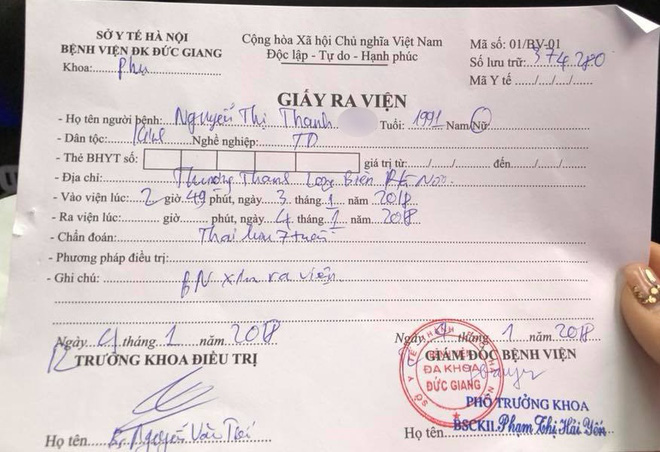 SỞ Y TẾ HÀ NỘI
BỆNH VIỆN ĐK ĐỨC GIANG
Khoa: phụ
Cộng hòa Xã hội Chủ nghĩa Việt Nam
Độc lập - Tự do - Hạnh phúc
Mã số: 01/BV-01
Số lưu trữ: 374.280
Mã Y tế ..../..../..../....
GIẤY RA VIỆN
- Họ tên người bệnh: Nguyễn Thị Thanh Tuổi: 1991 Nam/Nữ
- Dân tộc: Kinh Nghề nghiệp: TD
- Thẻ BHYT số: giá trị từ:..../..../.... đến..../..../....
- Địa chỉ: Thượng Thanh Long Biên Hà Nội
- Vào viện lúc: 2 giờ 49 phút, ngày 3 tháng 1 năm 2018
- Ra viện lúc: giờ phút, ngày 4 tháng 1 năm 2018
- Chẩn đoán: Thai lưu 7 tuần
- Phương pháp điều trị:
- Ghi chú: BN xin ra viện
Ngày 4 tháng 1 năm 2018
TRƯỞNG KHOA ĐIỀU TRỊ
Họ tên Bs. Nguyễn Văn
Ngày 4 tháng 1 năm 2018
GIÁM ĐỐC BỆNH VIỆN
ĐA KHOA
ĐỨC GIANG
PHÓ TRƯỞNG KHOA
Họ tên BSCKII. Phạm Thị Hải Yến